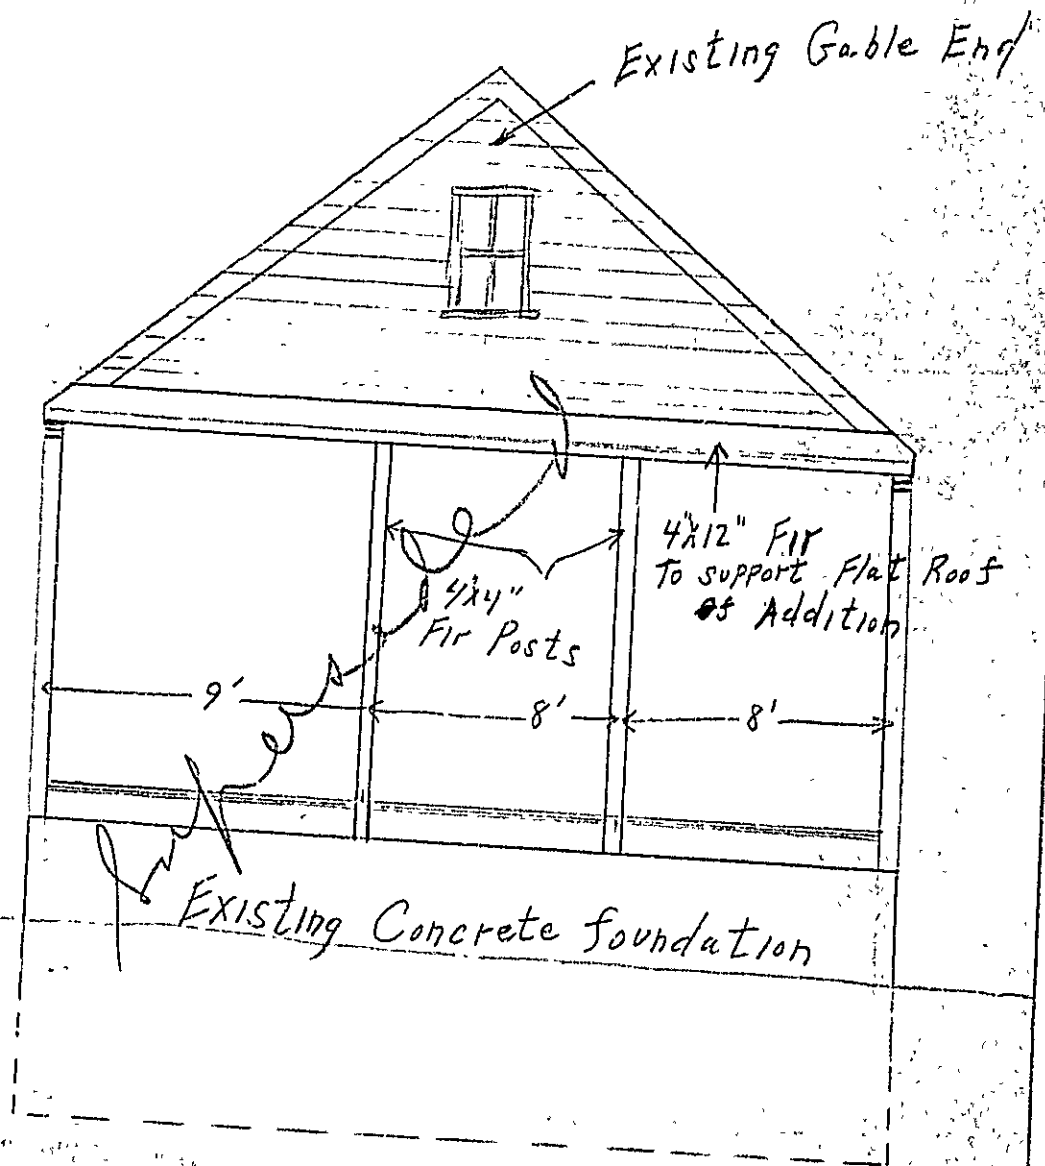 Existing Gable End
4"x12" Fir
To support Flat Roof
of Addition
4"x4"
Fir Posts
9'
8'
8'
Existing Concrete foundation